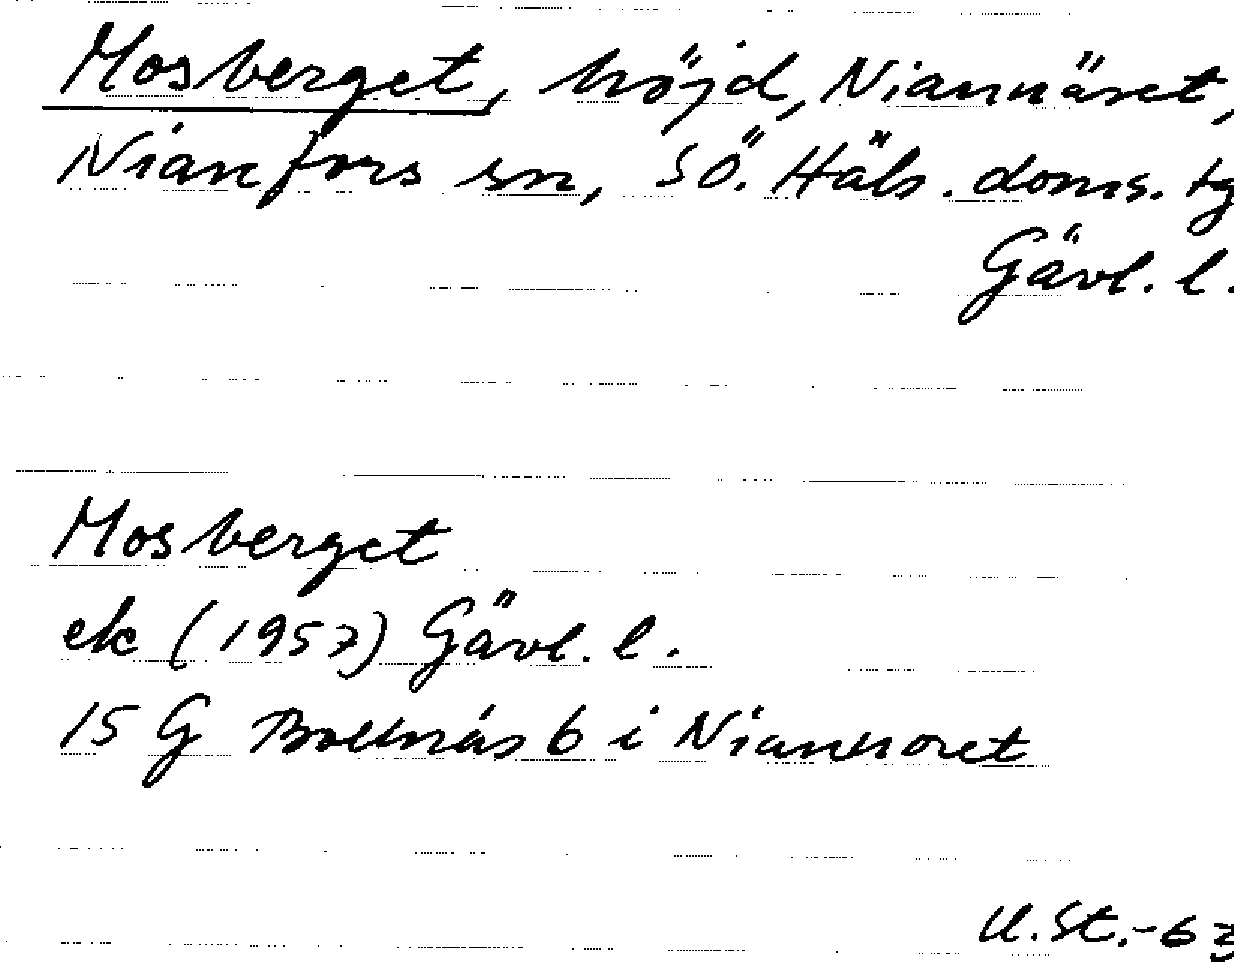 Mosberget, höjd, Niannäret,
Nianfors sn, SÖ. Häls. doms. tg
Gävl. l.
Mosberget
ek (1957) Gävl. l.
15 G Bollnäs 6 i Niannoret
U.St.-63